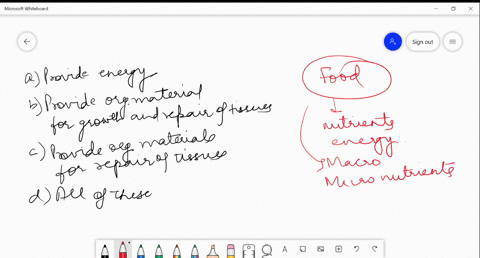 Microsoft Whiteboard
Sign out
a) Provide energy
b) Provide org material
for growth and repair of tissues
c) Provide org materials
for repair of tissues
d) All of these
Food
nutrients
energy
Macro
Micro nutrients
A